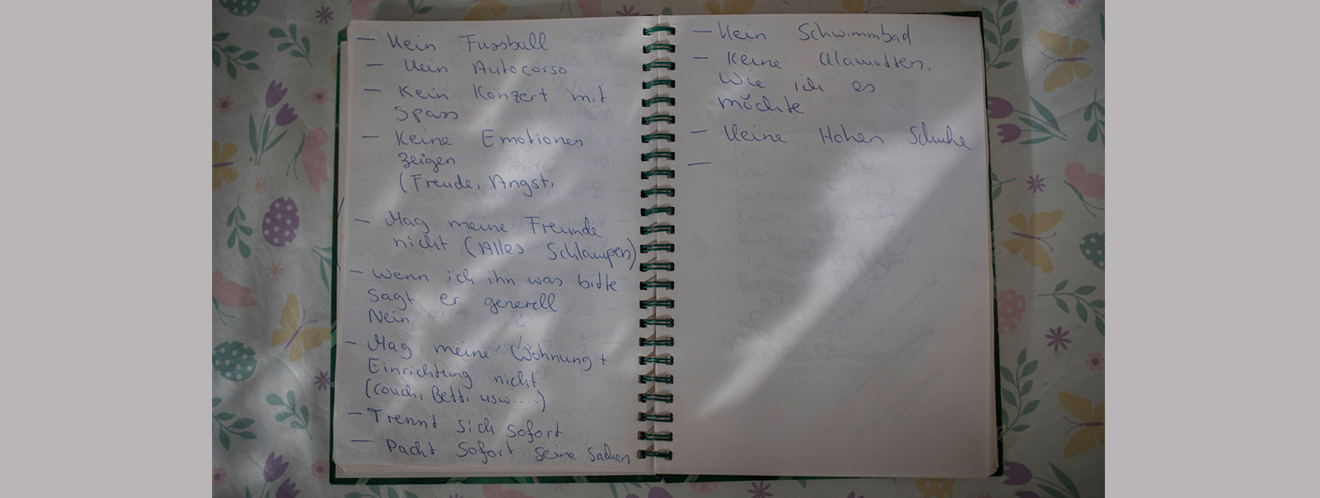 — Kein Fussball
— Kein Autocorso
— Kein Konzert mit
Spass
— Keine Emotionen
zeigen
(Freude, Angst,
— Mag meine Freunde
nicht (Alles Schlampen)
— Wenn ich ihn was bitte
sagt er generell
Nein
— Mag meine Wohnung +
Einrichtung nicht
(Couch, Bett, usw....)
— Trennt sich sofort
— Packt sofort seine Sachen
— Kein Schwimmbad
— Keine Klamotten,
Wie ich es
möchte
— Keine Hohen Schuhe
—